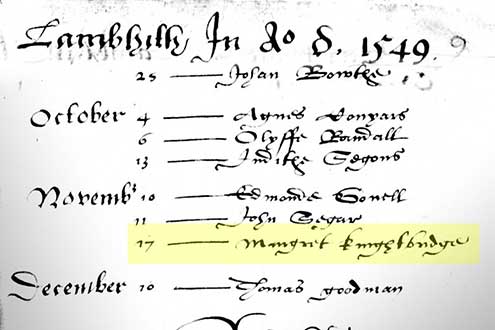 In Ao d. 1549.
25 Johan Bowthe
October 4 Agnes Conyars
6 Olyffe Randall
13 Judithe Segons
Novemb' 10 Edmonde Sonell
11 John Segar
17 Margret knightbridge
December 10 Thomas goodman